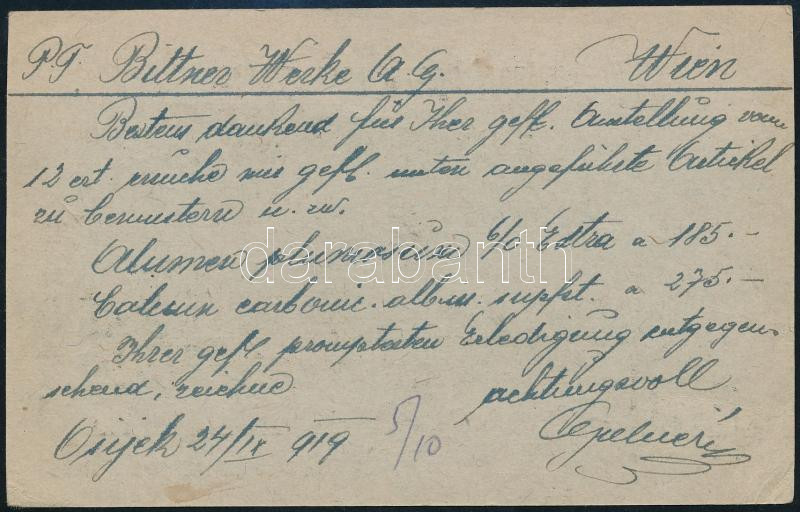 P.T. Bittner Werke A.G. Wien
Bestens dankend für Ihre gefl. Anstellung vom
12 crt. ersuche mir gefl. unten angeführte Artikel
zu bemustern u. zw.
Alumen plumosum Extra a 185.-
Calcium carbonic. album. a 275.-
Ihrer gefl. promptesten Erledigung entgegen-
sehend, zeichne achtungsvoll
Osijek 24/IX 919 5/10
darabanth